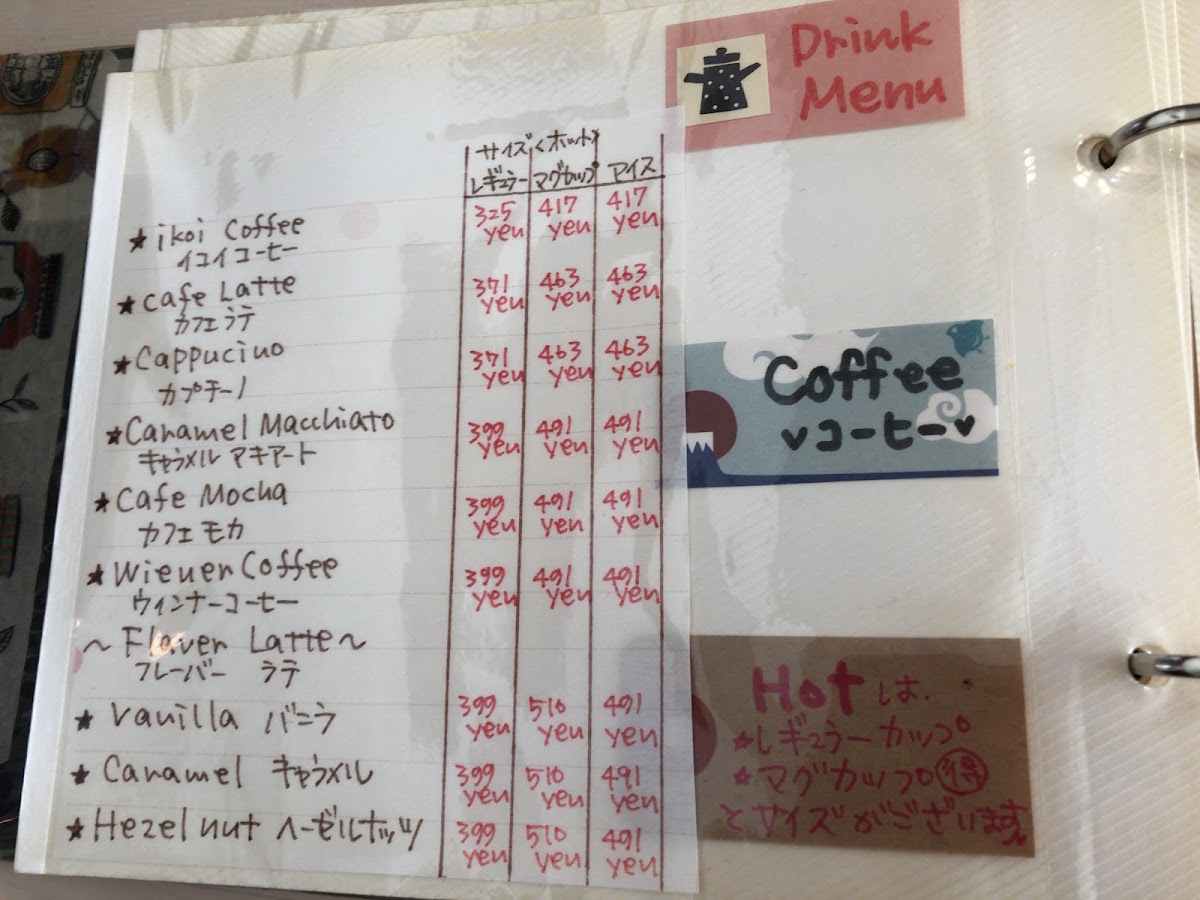 Drink
Menu
サイズ <ホット>
レギュラー マグカップ アイス
★ ikoi Coffee 325 yen 417 yen 417 yen
イコイコーヒー
★ Cafe Latte 371 yen 463 yen 463 yen
カフェラテ
★ Cappucino 371 yen 463 yen 463 yen
カプチーノ
★ Caramel Macchiato 399 yen 491 yen 491 yen
キャラメル マキアート
★ Cafe Mocha 399 yen 491 yen 491 yen
カフェ モカ
★ Wiener Coffee 399 yen 491 yen 491 yen
ウィンナーコーヒー
～ Flaver Latte ～
フレーバー ラテ
★ Vanilla バニラ 399 yen 510 yen 491 yen
★ Caramel キャラメル 399 yen 510 yen 491 yen
★ Hezel nut ヘーゼルナッツ 399 yen 510 yen 491 yen
Coffee
♥コーヒー♥
Hot は、
★レギュラーカップ
★マグカップ 得
とサイズがございます。